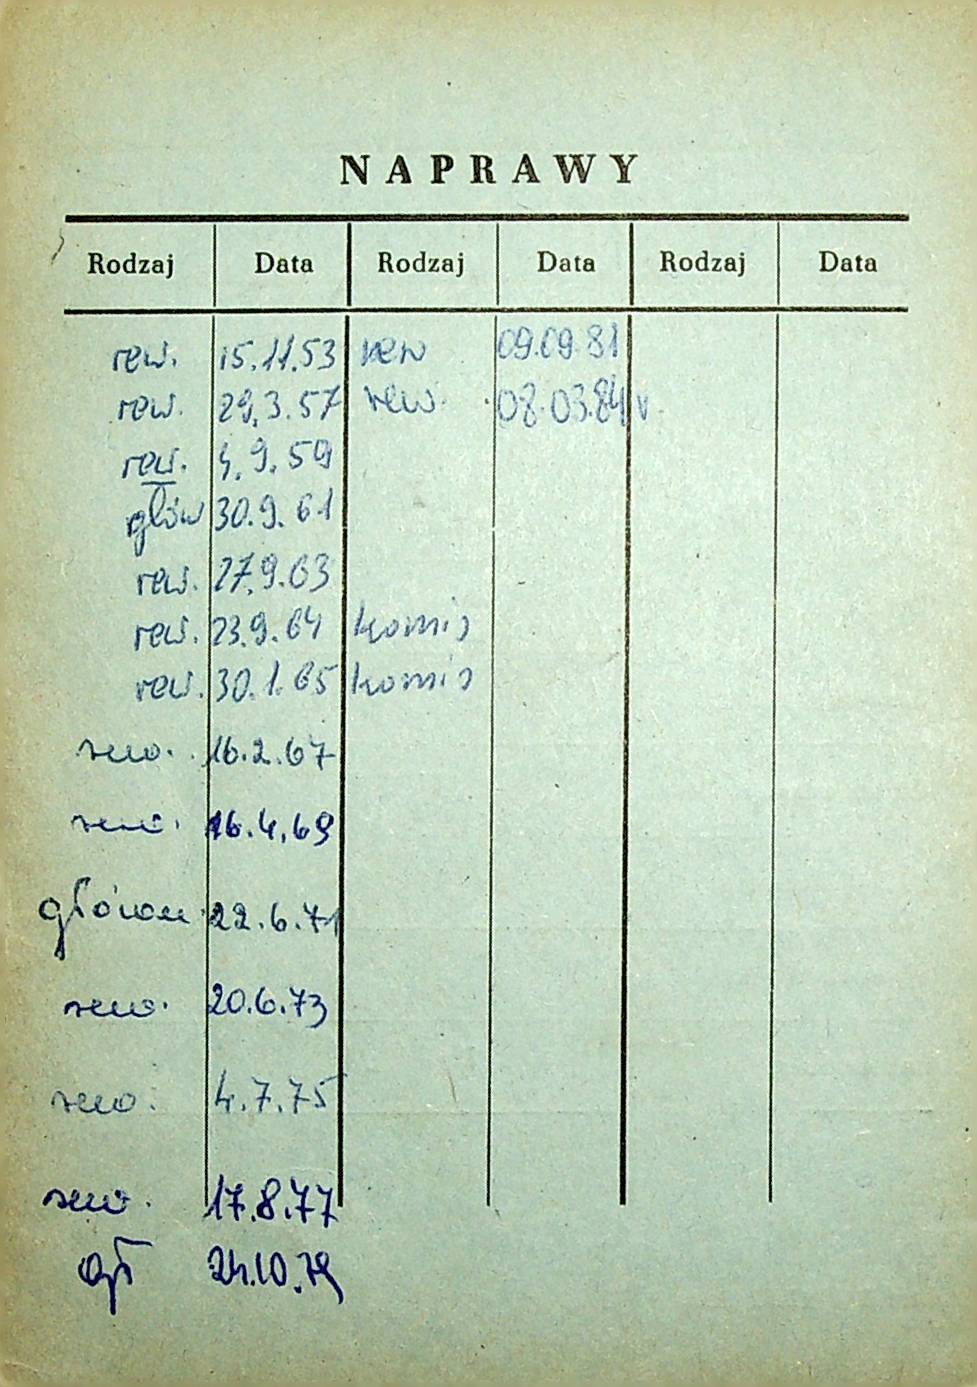 NAPRAWY
Rodzaj Data Rodzaj Data Rodzaj Data
rew. 15.11.53 rew 09.09.81
rew. 29.3.57 rew. 08.03.84
rew. 4.9.59
główn 30.9.61
rew. 27.9.63
rew. 23.9.64 komis
rew. 30.1.65 komis
rew. 16.2.67
rew. 16.4.69
główn 22.6.71
rew. 20.6.73
rew. 4.7.75
rew. 17.8.77
gł 24.10.79